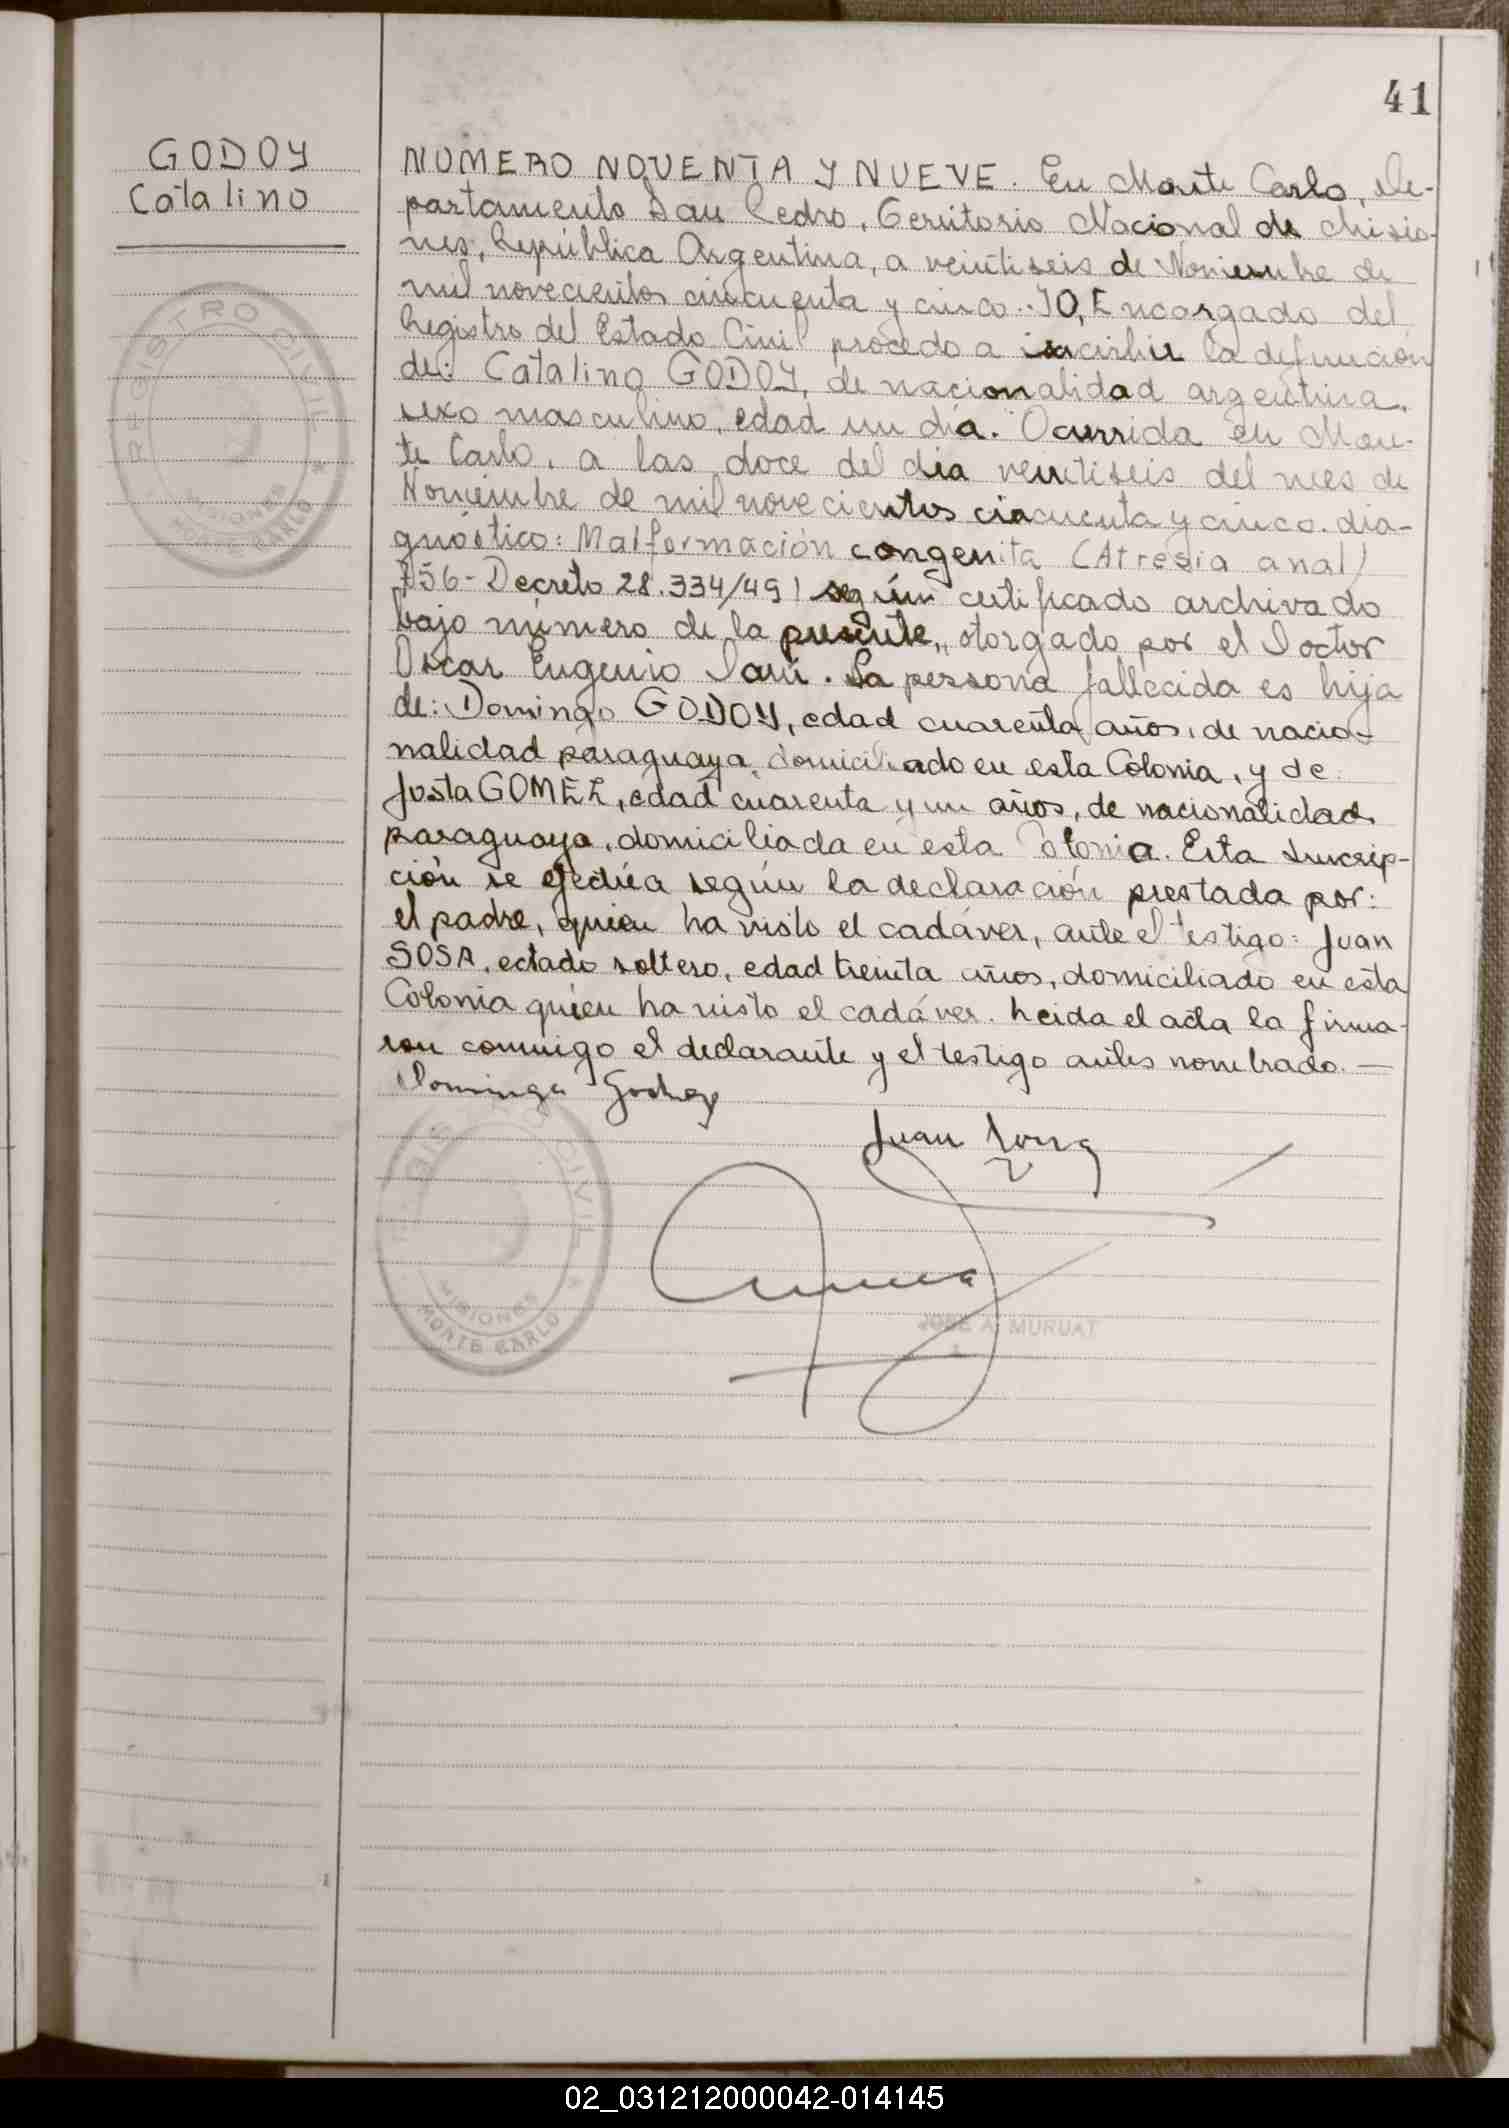 41
GODOY
Catalino
NUMERO NOVENTA Y NUEVE. En Monte Carlo, De-
partamento San Pedro, Territorio Nacional de Misio-
nes, República Argentina, a veintiseis de Noviembre de
mil novecientos cincuenta y cinco. YO, Encargado del
Registro del Estado Civil procedo a inscribir la defunción
de: Catalino GODOY, de nacionalidad argentina,
sexo masculino, edad un día. Ocurrida en Mon-
te Carlo, a las doce del día veintiseis del mes de
Noviembre de mil novecientos cincuenta y cinco. dia-
gnóstico: Malformación congenita (Atresia anal)
756 - Decreto 28.334/49) según certificado archivado
bajo número de la presente, otorgado por el Doctor
Oscar Eugenio . La persona fallecida es hija
de: Domingo GODOY, edad cuarenta años, de nacio-
nalidad paraguaya, domiciliado en esta Colonia, y de
Justa GOMEZ, edad cuarenta y un años, de nacionalidad
paraguaya, domiciliada en esta Colonia. Esta Inscrip-
ción se efectúa según la declaración prestada por:
el padre, quien ha visto el cadáver, ante el testigo: Juan
SOSA, estado soltero, edad treinta años, domiciliado en esta
Colonia quien ha visto el cadáver. Leida el acta la firma-
ron conmigo el declarante y el testigo antes nombrado. —
Domingo Godoy
Juan Sosa
JOSE A. MURUAT
REGISTRO CIVIL
MISIONES
MONTE CARLO
REGIS CIVIL
MISIONES
MONTE CARLO
02_031212000042-014145